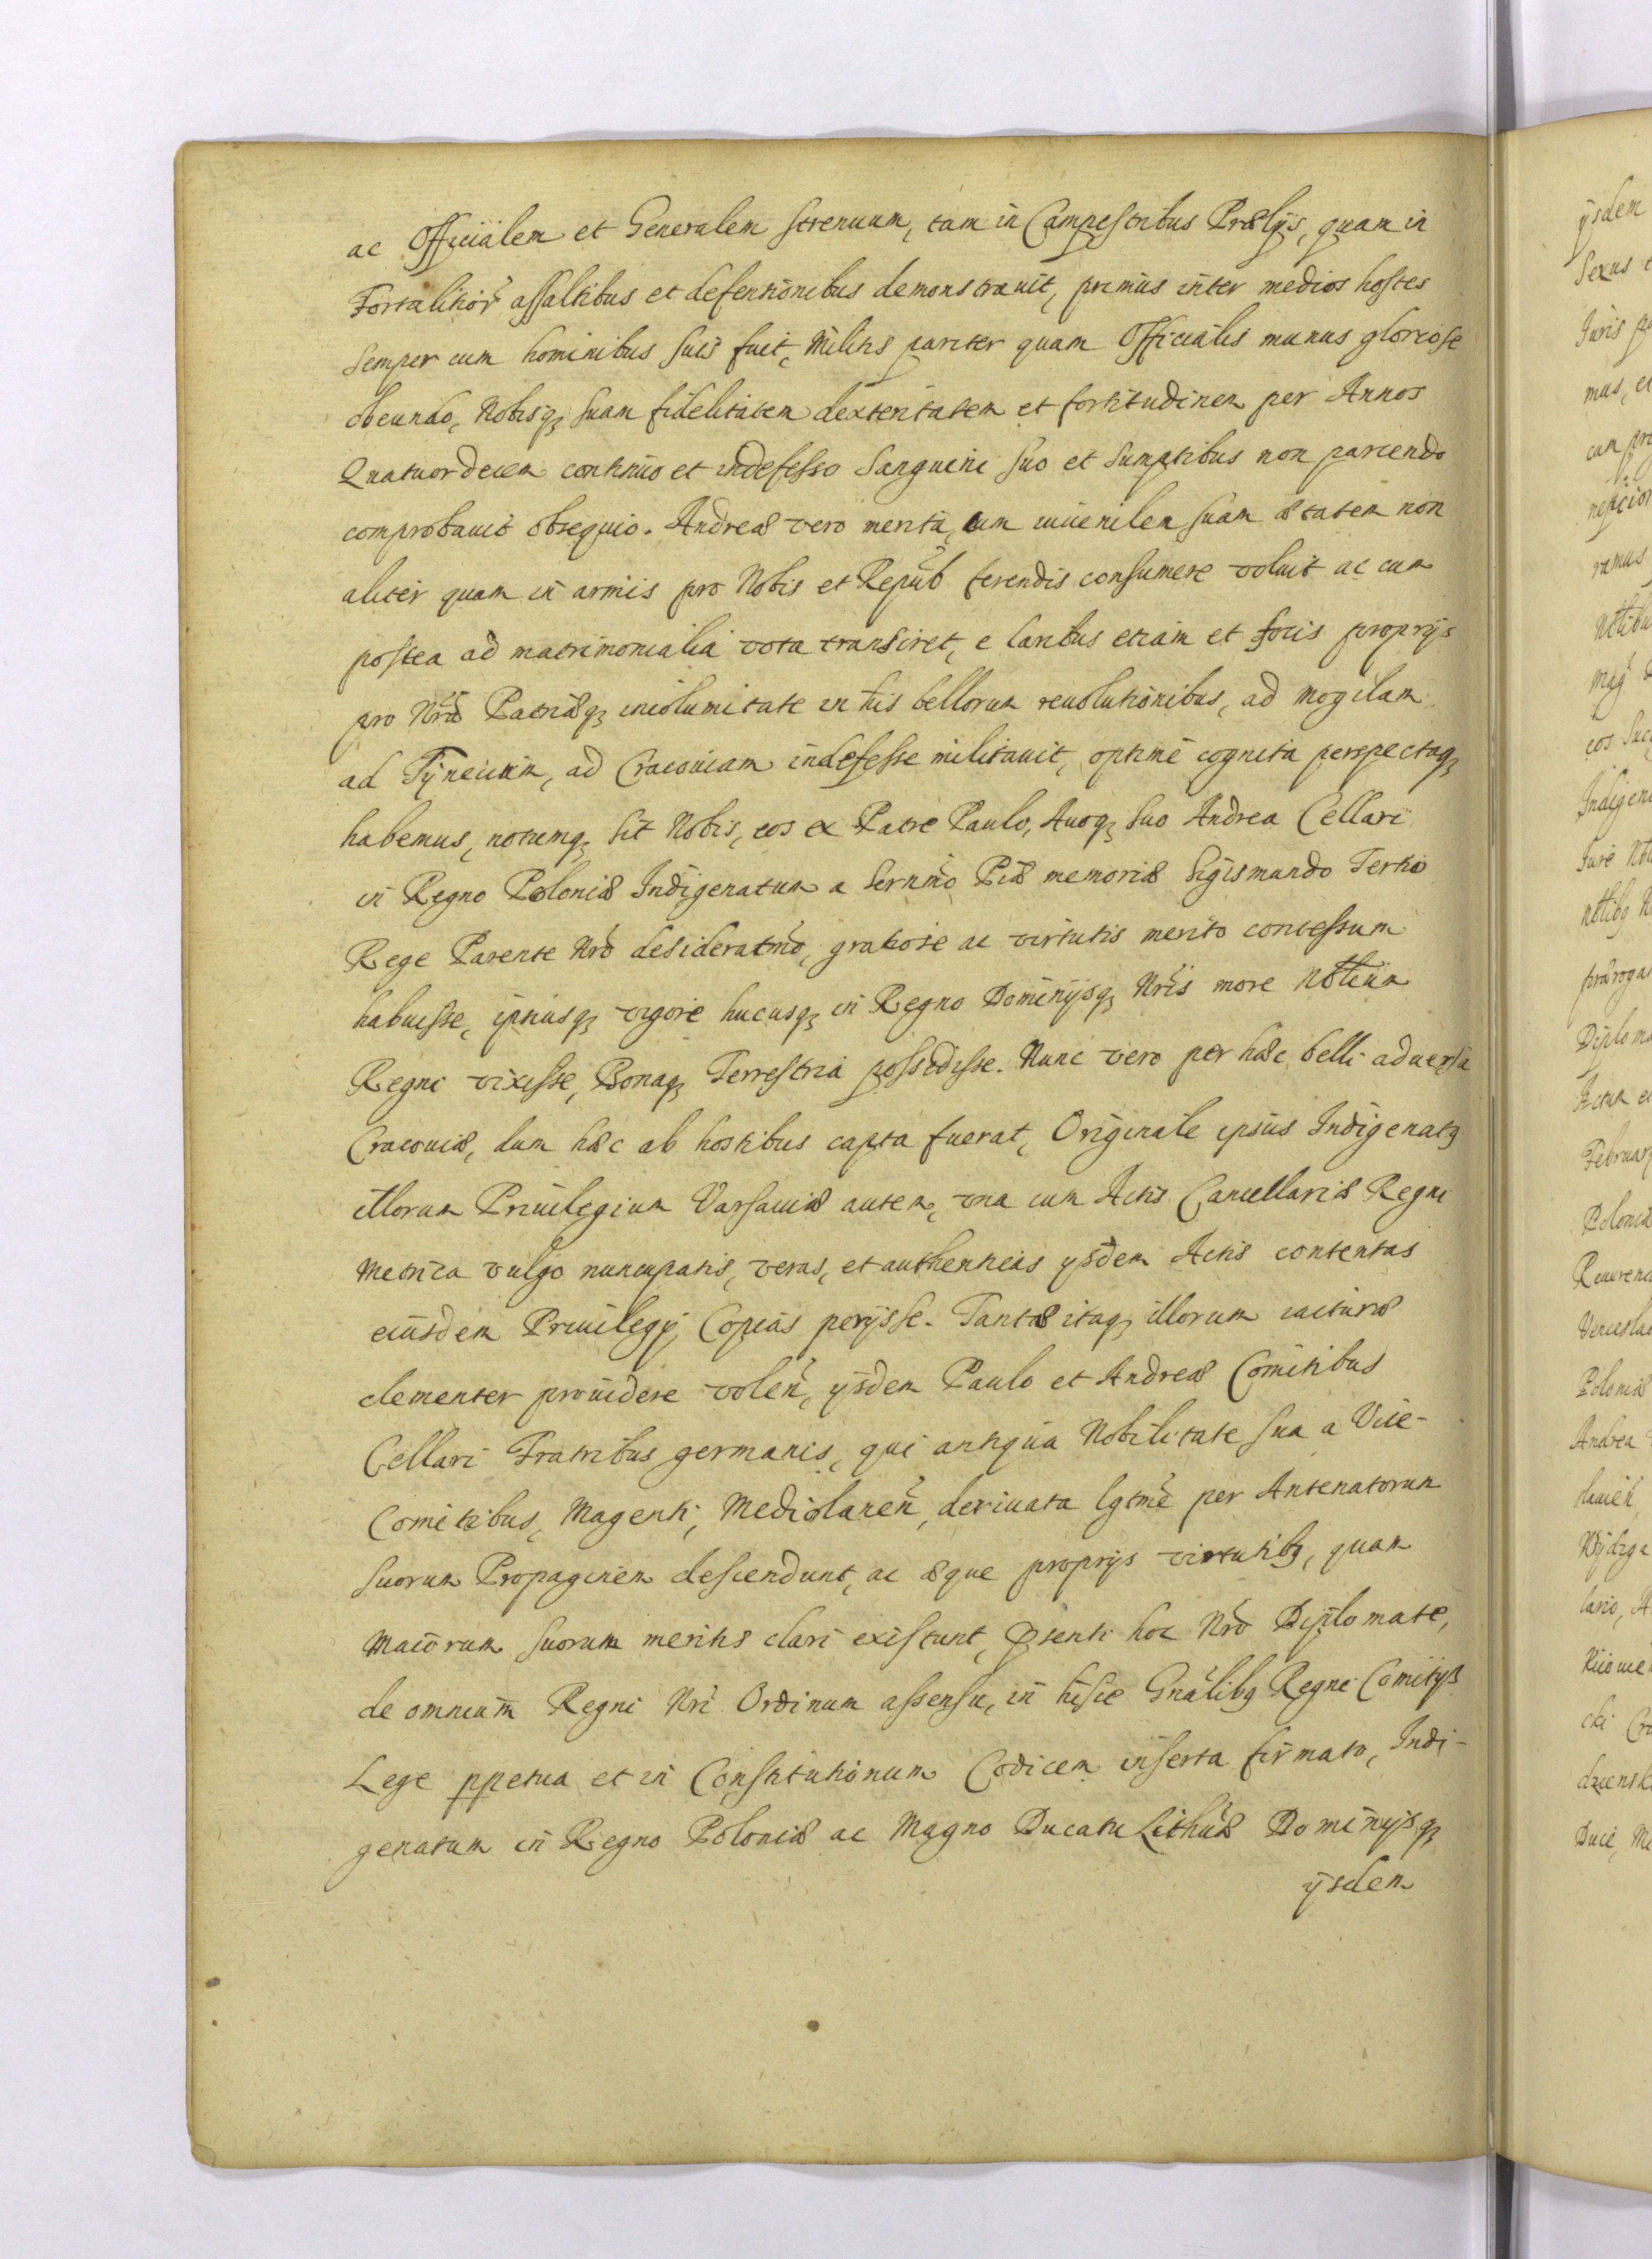 ac Officialem et Generalem strenuum, tam in Campestribus Prælÿs, quam in
Fortalitior̃ assaltibus et defensionibus demonstrauit, primus inter medios hostes
semper cum hominibus suis fuit, Militis pariter quam Officialis munus gloriose
obeundo, Nobisq₃ suam fidelitatem dexteritatem et fortitudinem per Annos
Quatuordecem continuo et indefesso Sanguini suo et Sumptibus non parcendo
comprobauit obsequio. Andreæ vero merita, cum iuuenilem suam ætatem non
aliter quam in armis pro Nobis et Repub̃ ferendis consumere voluit ac cum
postea ad matrimonialia vota transiret, e laribus etiam et focis proprÿs
pro Nrã Patriæq₃ incolumitate in his bellorum reuolutionibus, ad Mogilam
ad Tÿneciam, ad Cracouiam indefesse militauit, optime cognita perspectaq₃
habemus, notumq₃ sit Nobis, eos ex Patre Paulo, Auoq₃ suo Andrea Cellari
in Regno Poloniæ Indigenatum a Sernm̃o Piæ memoriæ Sigismundo Tertio
Rege Parente Nrõ desideratm̃o, gratiose ac virtutis merito concessum
habuisse, ipsiusq₃ vigore hucusq₃ in Regno Dominÿsq₃ Nrĩs more Nobiliũm
Regni vixisse, Bonaq₃ Terrestria possedisse. Nunc vero per hæc belli aduersa
Cracouiæ, dum hæc ab hostibus capta fuerat, Originale ipsius Indigenatq
illorum Priuilegium Varsauiæ autem, vna cum Actis Cancellariæ Regni
Metrica vulgo nuncupatis, veras, et authenticas ÿsdem Actis contentas
eiusdem Priuilegÿ Copias perÿsse. Tantæ itaq₃ illorum iacturæ
clementer prouidere volen̄, ÿsdem Paulo et Andreæ Comitibus
Cellari Fratribus germanis, qui antiqua Nobilitate sua a Vice-
Comitibus, Magenti, Mediolanen̄, deriuata lgtm̃e per Antenatorum
suorum Propaginem descendunt, ac æque proprÿs virtutibq, quam
Maiorum suorum meritis clari existunt, p̃senti hoc Nrõ Diplomate,
de omnium Regni Nrĩ Ordinum assensu, in hisce Gnãlibq Regni Comitÿs
Lege ppetua et in Constitutionum Codicem inserta firmato, Indi-
genatum in Regno Poloniæ ac Magno Ducatu Lithũæ Dominÿsq₃
ÿsdem
ÿsdem
Sexus
Iuris
mus, et
cum
ramus
Indigen
Iure
prærogat
Diploma
Actum
Februar
Poloniæ
Reuerend
Venceslao
Poloniæ
Andrea
Wÿdzga
lario, A
cki Cra
dzienski
Duce, Ma